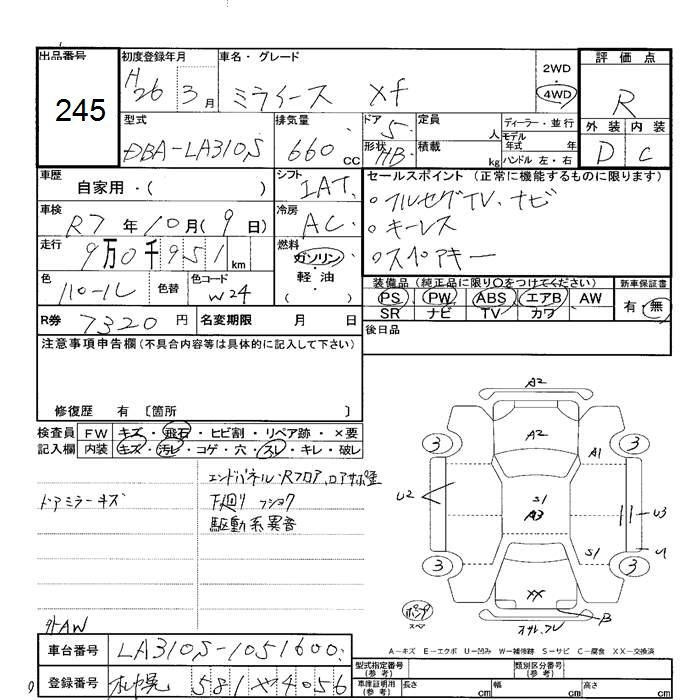 出品番号 245
初度登録年月 H26 3月
車名・グレード ミライース Xf
2WD
4WD
評価点 R
外装 内装
D C
型式 DBA-LA310S
排気量 660 CC
ドア 5
形状 HB
定員 人
積載 kg
ディーラー・並行
モデル年式 年
ハンドル 左・右
車歴 自家用・( )
シフト IAT
セールスポイント (正常に機能するものに限ります)
。フルセグTV、ナビ
。キーレス
。スペアキー
車検 R7年10月(9日)
冷房 AC
走行 9万0千951km
燃料 ガソリン・軽油・( )
色 パール
色替
色コード W24
装備品 (純正品に限り○をつけてください)
PS PW ABS エアB AW
SR ナビ TV カワ
新車保証書
有・無
R券 7320円
名変期限 月 日
後日品
注意事項申告欄(不具合内容等は具体的に記入して下さい)
修復歴 有 〔箇所 〕
検査員記入欄
FW キズ・飛石・ヒビ割・リペア跡・×要
内装 キズ・汚レ・コゲ・穴・スレ・キレ・破レ
エンドパネル・Rフロア、ロアサポ歪
ドアミラーキズ
下廻り フショク
駆動系異音
外AW
A2
A2
3 3
A1
U2
S1
A3
U3
S1
U
3 3
XX
B
ポンプ
スペア
A−キズ E−エクボ U−凹み W−補修跡 S−サビ C−腐食 XX−交換済
車台番号 LA310S-1051600
登録番号 札幌 581 や 4056
型式指定番号(参考)
類別区分番号(参考)
車庫証明用(参考) 長さ cm 幅 cm 高さ cm